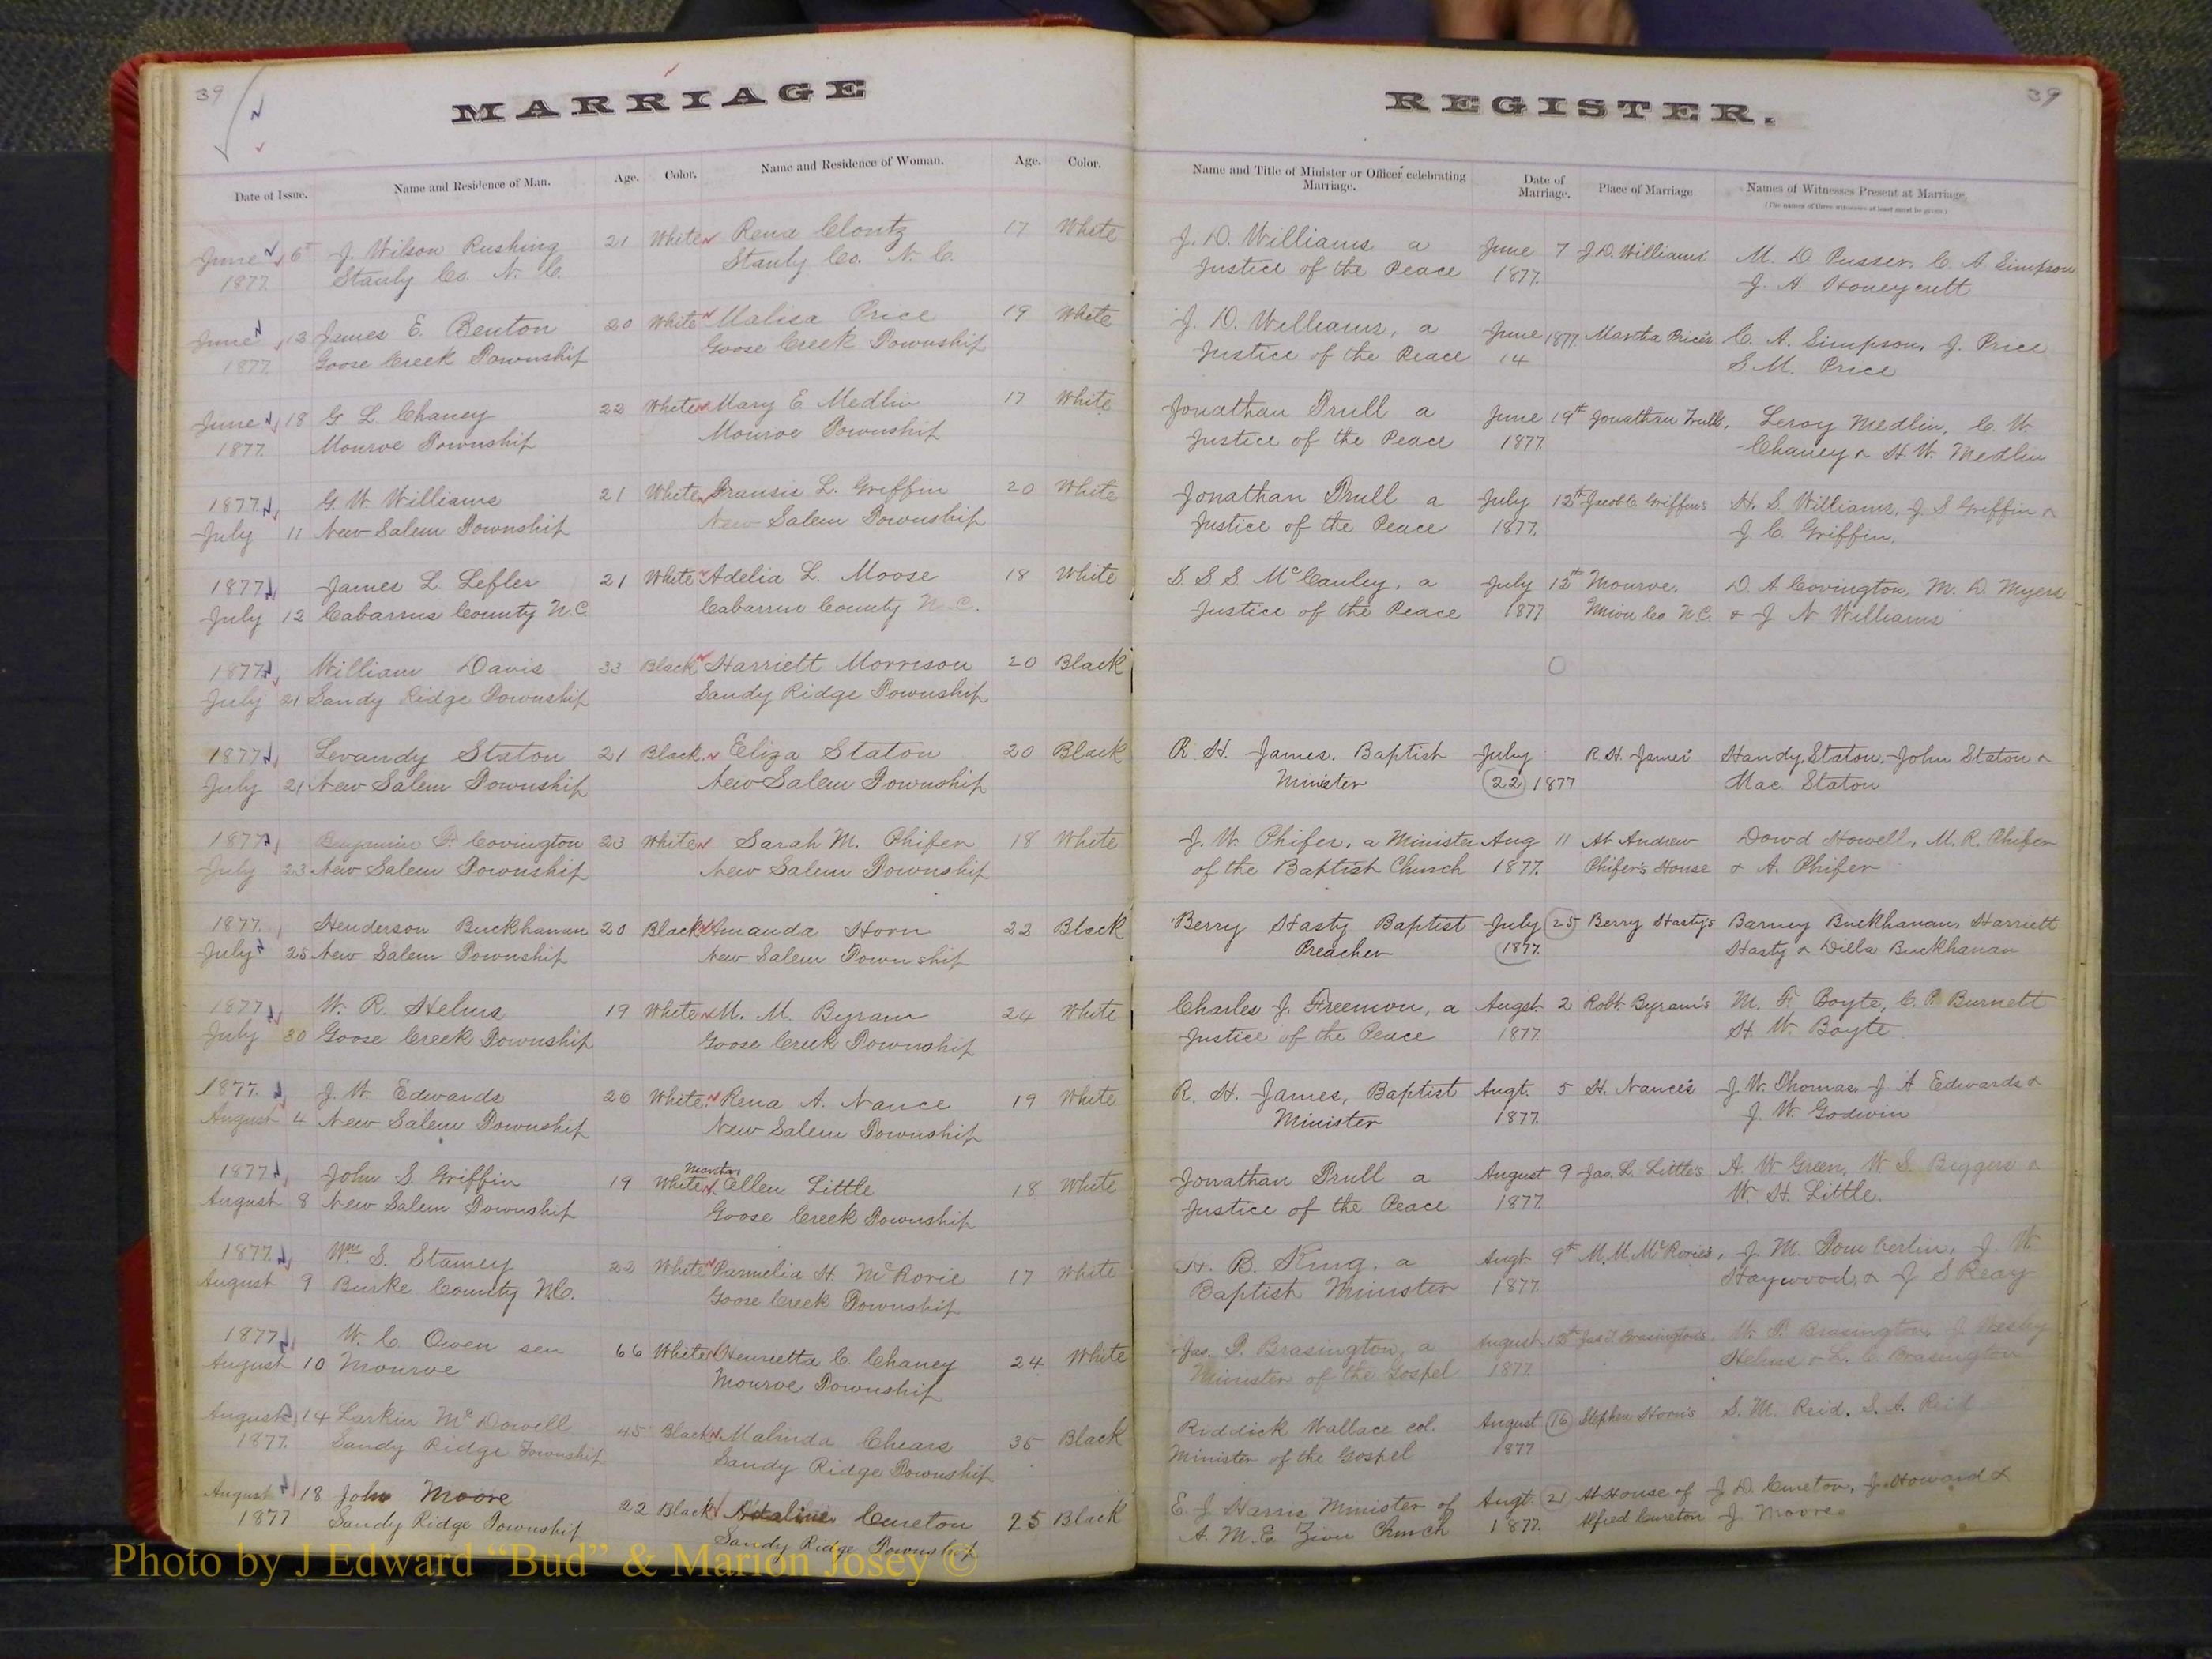 39
MARRIAGE
Date of Issue. Name and Residence of Man. Age. Color. Name and Residence of Woman. Age. Color.
June 6th J. Wilson Rushing 21 White Rena Clontz 17 White
1877. Stanly Co. N. C. Stanly Co. N. C.
June 13 James E. Benton 20 White Malisa Price 19 White
1877 Goose Creek Township Goose Creek Township
June 18 G L. Chaney 22 White Mary E Medlin 17 White
1877. Monroe Township Monroe Township
1877 G. W Williams 21 White Fransis L. Griffin 20 White
July 11 New Salem Township New Salem Township
1877 James L. Lefler 21 White Adelia L. Moose 18 White
July 12 Cabarrus County N.C. Cabarrus County N.C.
1877 William Davis 33 Black Harriett Morrison 20 Black
July 21 Sandy Ridge Township Sandy Ridge Township
1877 Levandy Staton 21 Black. Eliza Staton 20 Black
July 21 New Salem Township New Salem Township
1877 Benjamin F. Covington 23 White Sarah M. Phifer 18 White
July 23 New Salem Township New Salem Township
1877. Henderson Buckhanan 20 Black Amanda Horn 22 Black
July 25 New Salem Township New Salem Township
1877 W. R. Helms 19 White M. M. Byram 24 White
July 30 Goose Creek Township Goose Creek Township
1877. J. W. Edwards 26 White. Rena A. Nance 19 White
August 4 New Salem Township New Salem Township
Martha
1877 John S. Griffin 19 White Ellen Little 18 White
August 8 New Salem Township Goose Creek Township
1877. Wm S. Stamey 22 White Parmelia H. McRorie 17 White
August 9 Burke County N.C. Goose Creek Township
1877 W. C. Owen sen 66 White Henrietta C. Chaney 24 White
August 10 Monroe Monroe Township
August 14 Larkin McDowell 45 Black Malinda Chears 35 Black
1877. Sandy Ridge Township Sandy Ridge Township
August 18 John Moore 22 Black Cureton 25 Black
1877 Sandy Ridge Township Sandy Ridge Township
39
REGISTER.
Name and Title of Minister or Officer celebrating Marriage. Date of Marriage. Place of Marriage Names of Witnesses Present at Marriage.
(The names of three witnesses at least must be given.)
J. D. Williams a June 7 J.D. Williams M. D. Pusser, C. A. Simpson
Justice of the Peace 1877. J. A Honeycutt
J. D. Williams, a June 1877. Martha Price's C. A. Simpson, J. Price
Justice of the Peace 14 S. M. Price
Jonathan Trull a June 19th Jonathan Trulls, Leroy Medlin, C. W.
Justice of the Peace 1877. Chaney & H. W. Medlin
Jonathan Trull a July 12th Jacob C. Griffins H. S. Williams, J S Griffin &
Justice of the Peace 1877. J. C. Griffin.
S S. S. McCauley, a July 12th Monroe, D. A Covington, M. D. Myers
Justice of the Peace 1877 Union Co N.C. & J N Williams
O
R. H. James. Baptist July R. H. James' Handy Staton. John Staton &
Minister 22 1877 Mac Staton
J. W. Phifer, a Minister Aug 11 At Andrew Dowd Howell, M. R. Phifer
of the Baptist Church 1877. Phifer's House & A. Phifer
Berry Hasty Baptist July 25 Berry Hasty's Barney Buckhanan, Harriett
Preacher 1877. Hasty & Dilla Buckhanan
Charles J. Freemon, a Augst. 2 Robt. Byram's M. F. Boyte, C. P. Burnett
Justice of the Peace 1877. H. W. Boyte
R. H. James, Baptist Augt. 5 H. Nance's J. W. Thomas, J A Edwards &
Minister 1877. J. W. Godwin
Jonathan Trull a August 9 Jas. L. Little's A. W Green, W S. Biggers &
Justice of the Peace 1877. W. H. Little.
H. B. King, a Augt. 9th M. M. McRorie's, J. M. Tomberlin, J. W.
Baptist Minister 1877. Haywood, & J S Reay
Jas. P. Brasington, a August 12th Brasington's, W. P. Brasington, J Wesley
Minister of the Gospel 1877. Helms & L. C. Brasington
Riddick Wallace col. August 16 Stephen Horn's S. M. Reid, S. A. Reid
Minister of the Gospel 1877
E. J. Harris Minister of Augt. 21 At House of J. D. Cureton, J. Howard &
A. M. E. Zion Church 1877. Alfred Cureton J. Moore
Photo by J Edward “Bud” & Marion Josey ©